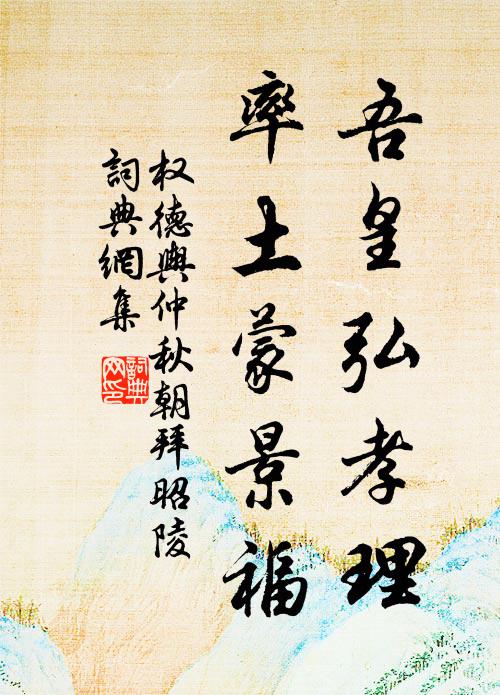 吾皇弘孝理
率土蒙景福
权德舆仲秋朝拜昭陵
詞典網集
詞典网印